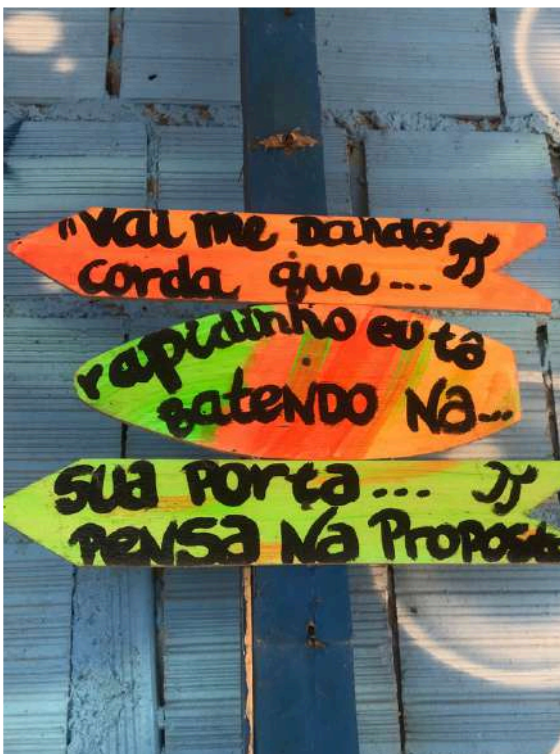 "Vai me Dando
corda que...
rapidinho eu tô
BateNDO Na...
SUA PORta...
PeNSa Na PROPOSta